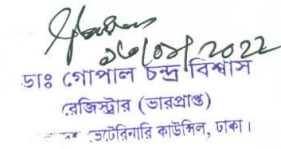 ১৬/০১/2022
ডাঃ গোপাল চন্দ্র বিশ্বাস
রেজিস্ট্রার (ভারপ্রাপ্ত)
ভেটেরিনারি কাউন্সিল, ঢাকা।